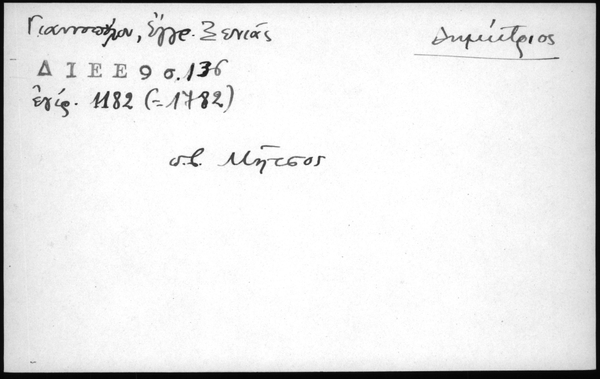 Γιαννοπούλου, Ἔγγρ. Ξενιάς
Δημήτριος
ΔΙΕΕ 9 σ. 136
ἐγίρ. 1182 (=1782)
σ.β. Μῆτσος